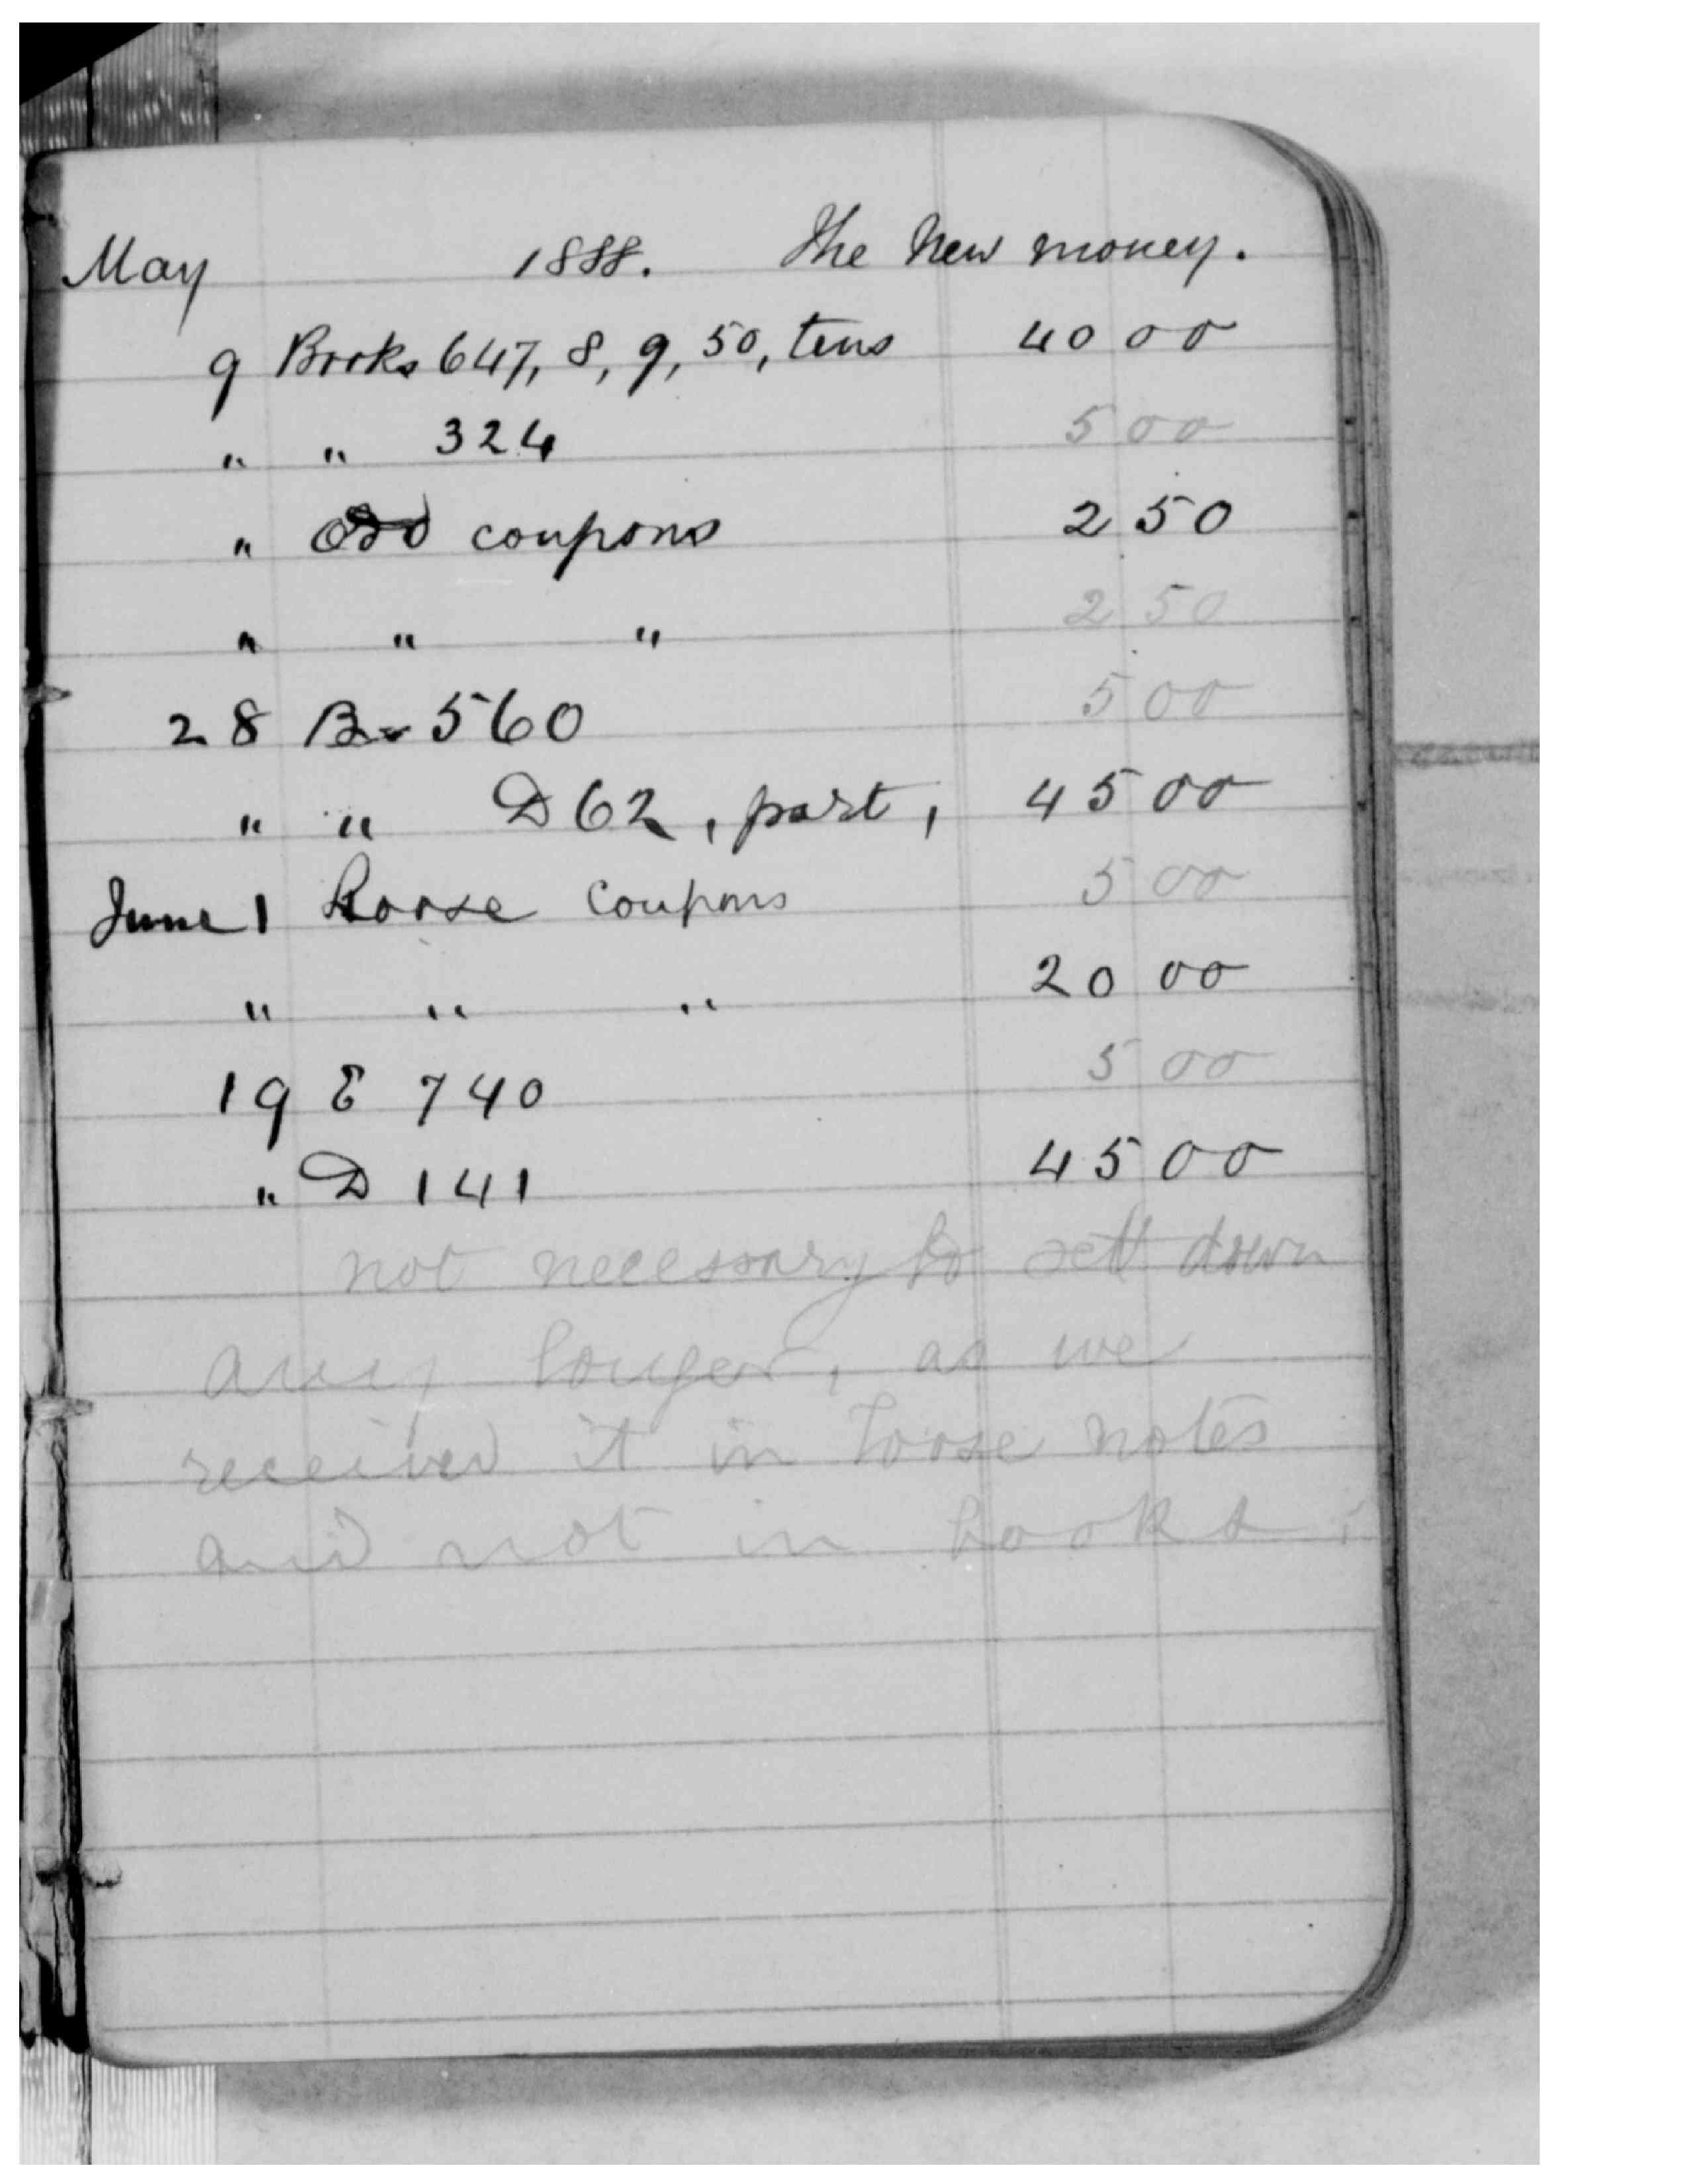 May 1888. The New money.
9 Books 647, 8, 9, 50, tens 40 00
" " 324 5 00
" Odd coupons 2 50
" " " 2 50
28 B 560 5 00
" " D 62, part, 45 00
June 1 Loose coupons 5 00
" " " 20 00
19 E 740 5 00
" D 141 45 00
not necessary to set down
any longer, as we
received it in loose notes
and not in books.